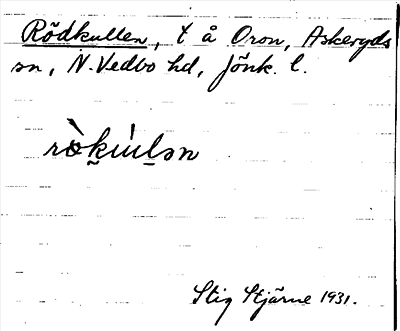 Rödkullen, t å Oron, Askeryds
sn, N. Vedbo hd, Jönk. l.
rö̀ku̇̀lən
Stig Stjärne 1931.